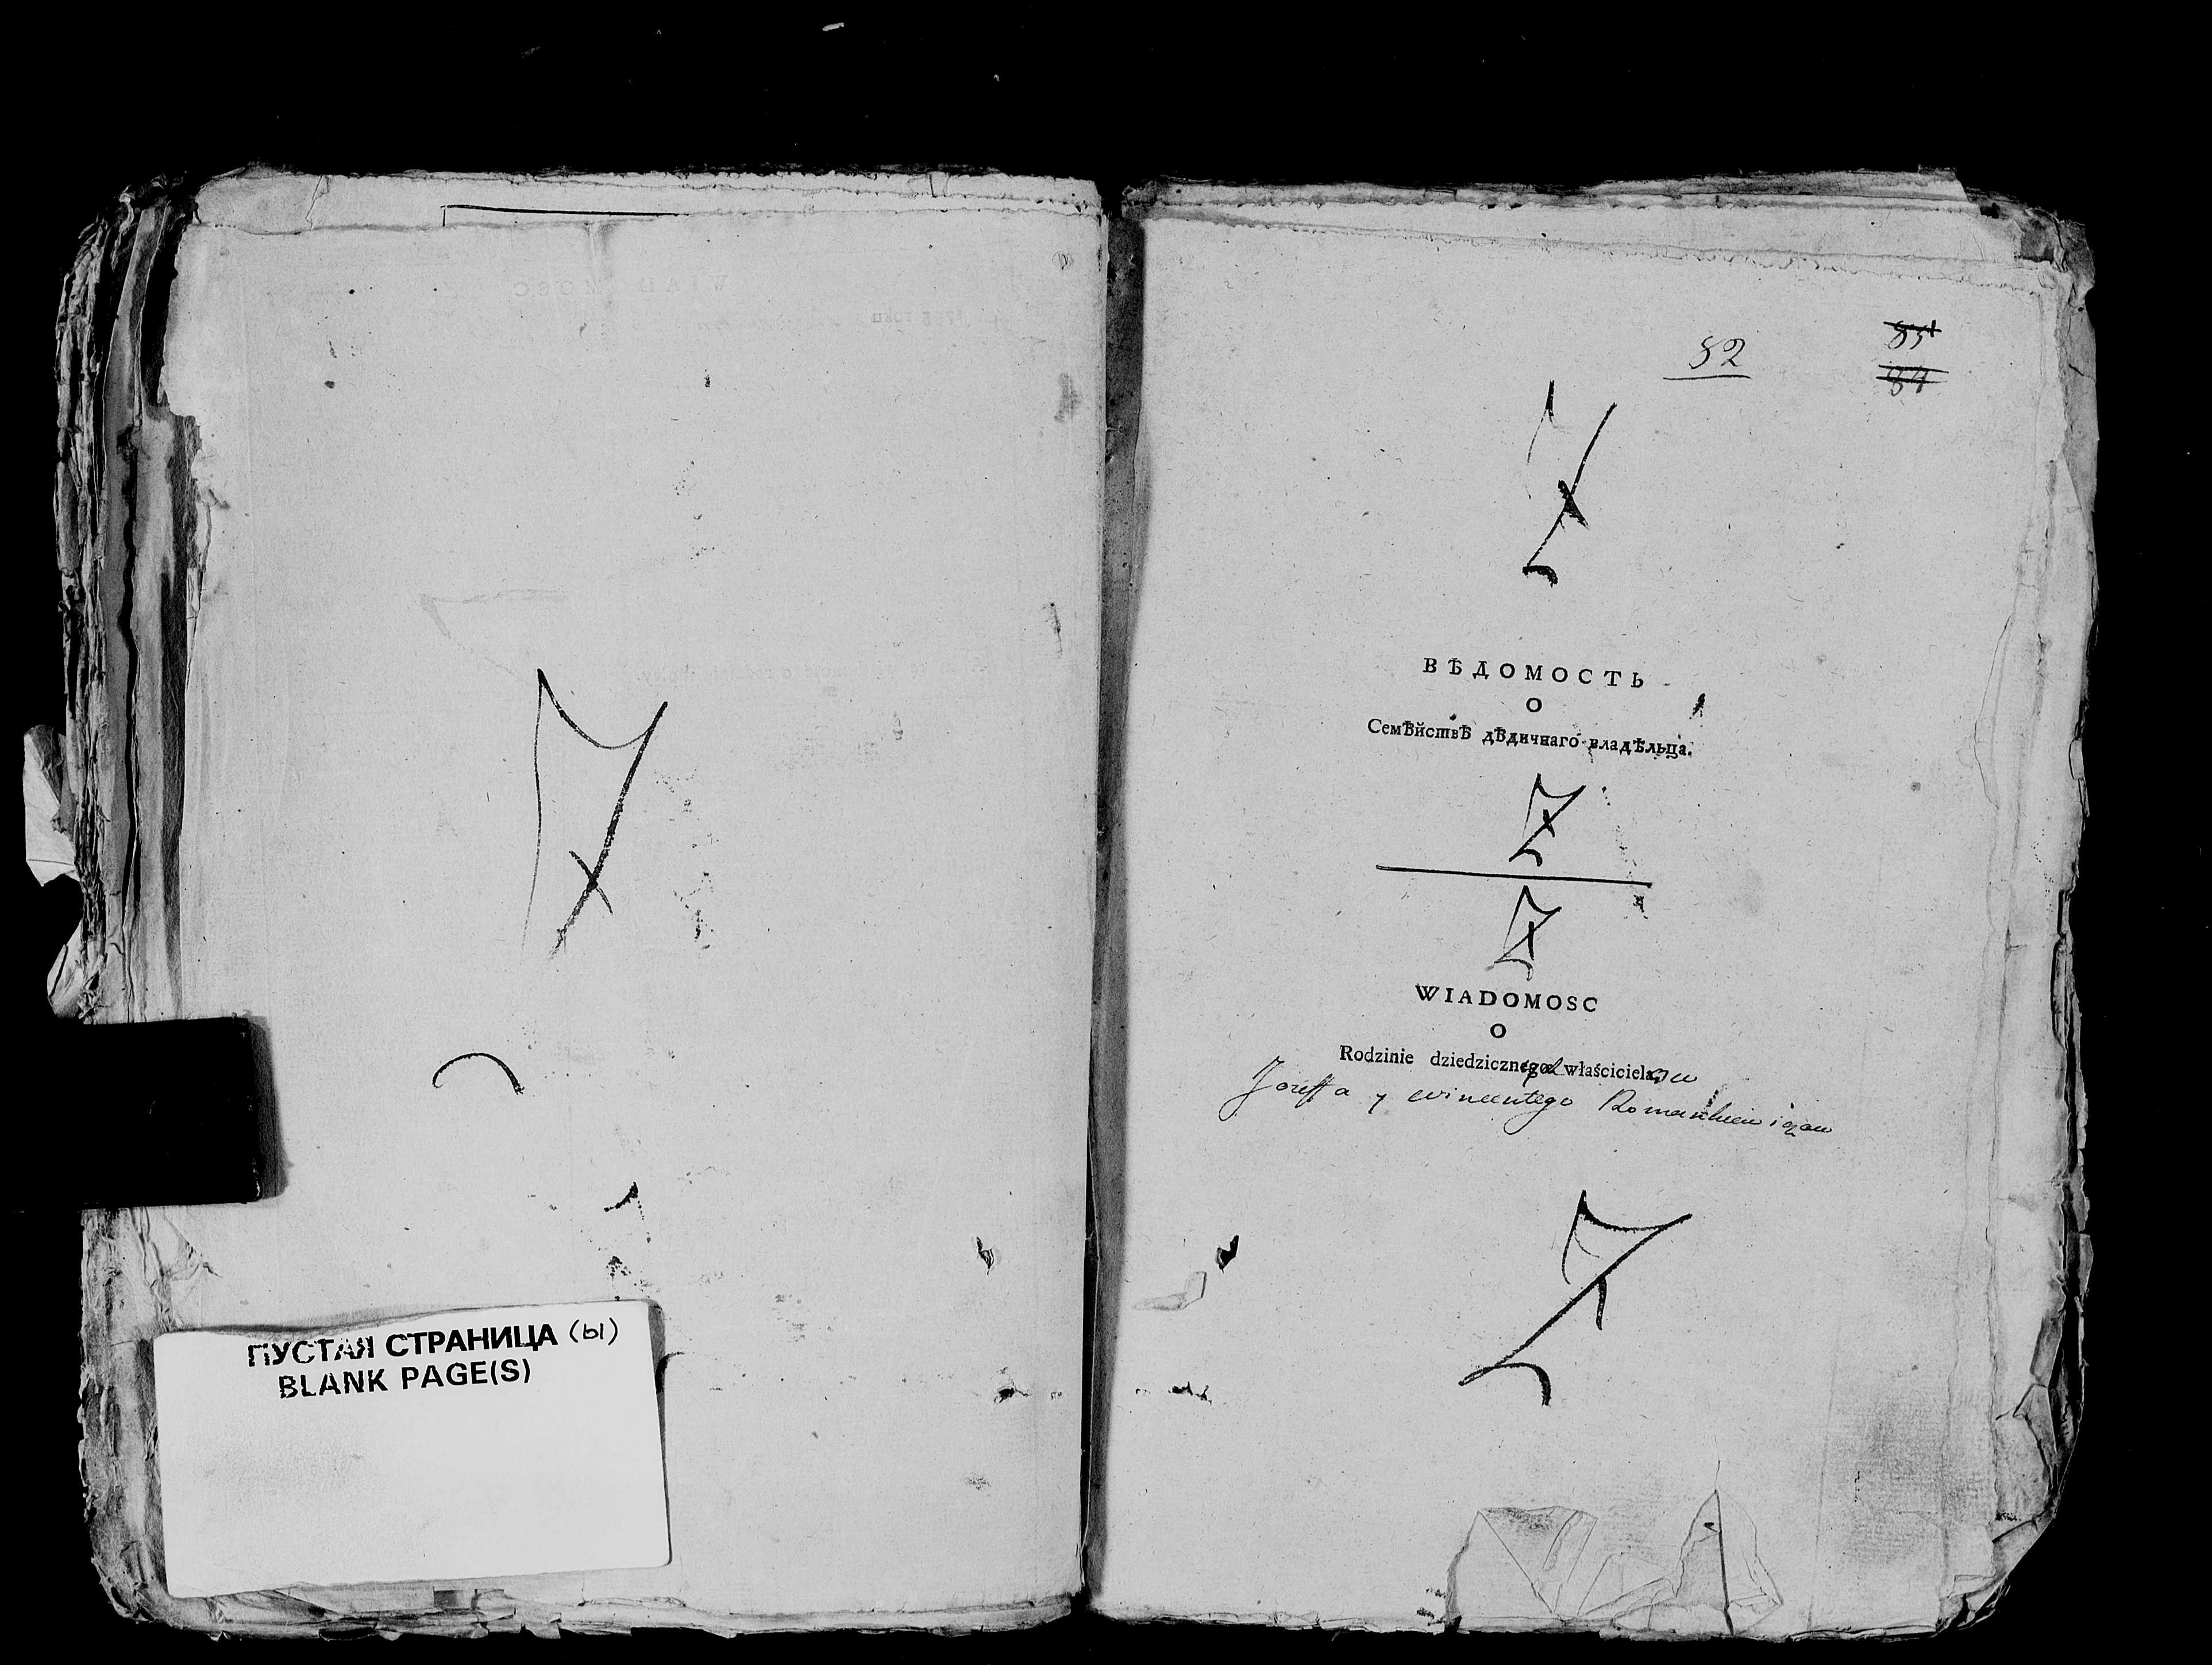 ПУСТАЯ СТРАНИЦА (ы)
BLANK PAGE(S)
82
ВѢДОМОСТЬ
О
Семѣйствѣ дѣдичнаго владѣльца.
WIADOMOSC
O
Rodzinie dziedzicznego właściciela
Jozeffa y wincentego